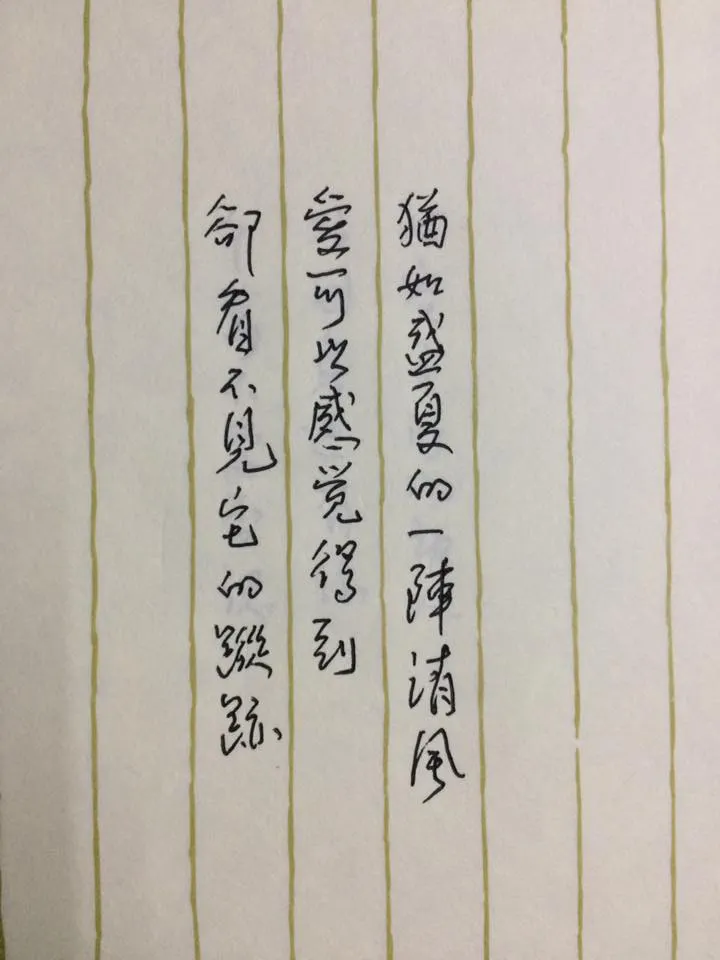 猶如盛夏的一陣清風
愛可以感覺得到
卻看不見它的蹤跡